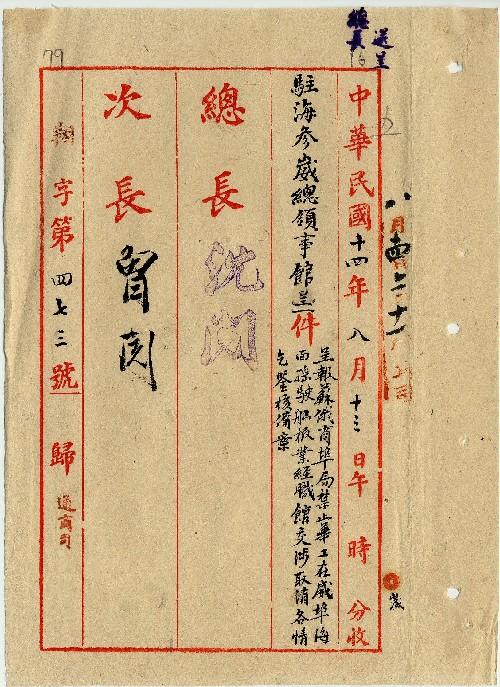 送呈
總長
79
中華民國十四年八月十三日午 時 分收
駐海參崴總領事館呈一件
呈報蘇俄商埠局禁止華工在崴埠海
面操駛舢板業經職館交涉取消各情
乞鑒核備案
總長
沈閱
次長
曾閱
字第四七三號 歸通商司